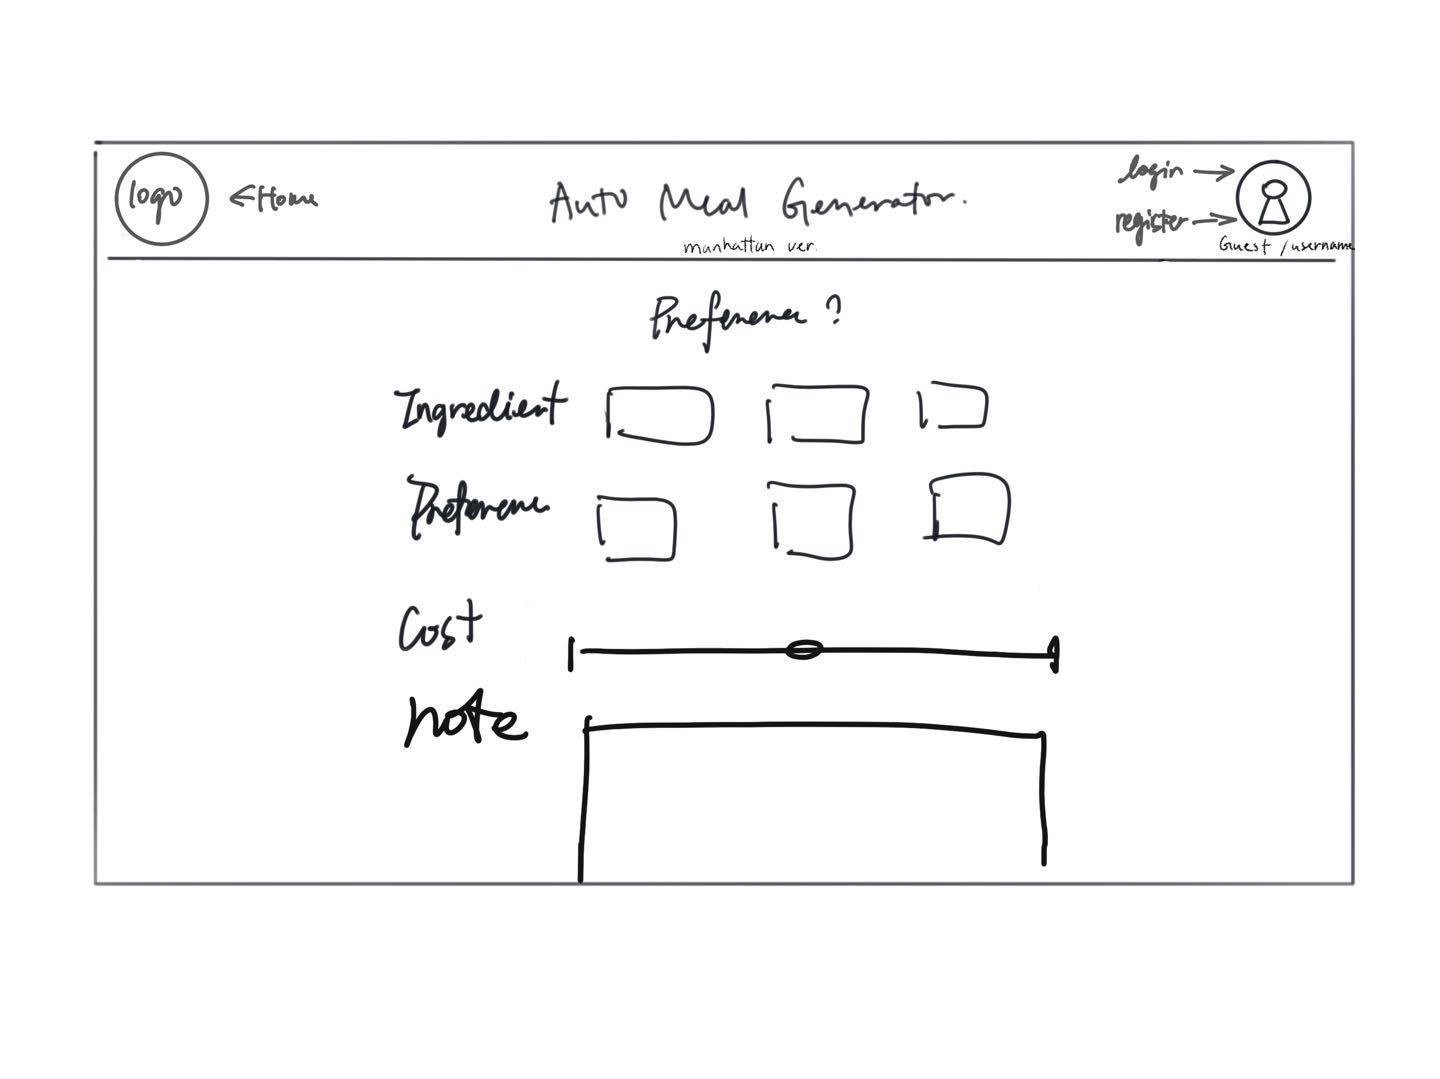 logo
←Home
Auto Meal Generator.
manhattan ver.
login →
register →
Guest / username
Preference ?
Ingredient
Preference
Cost
note